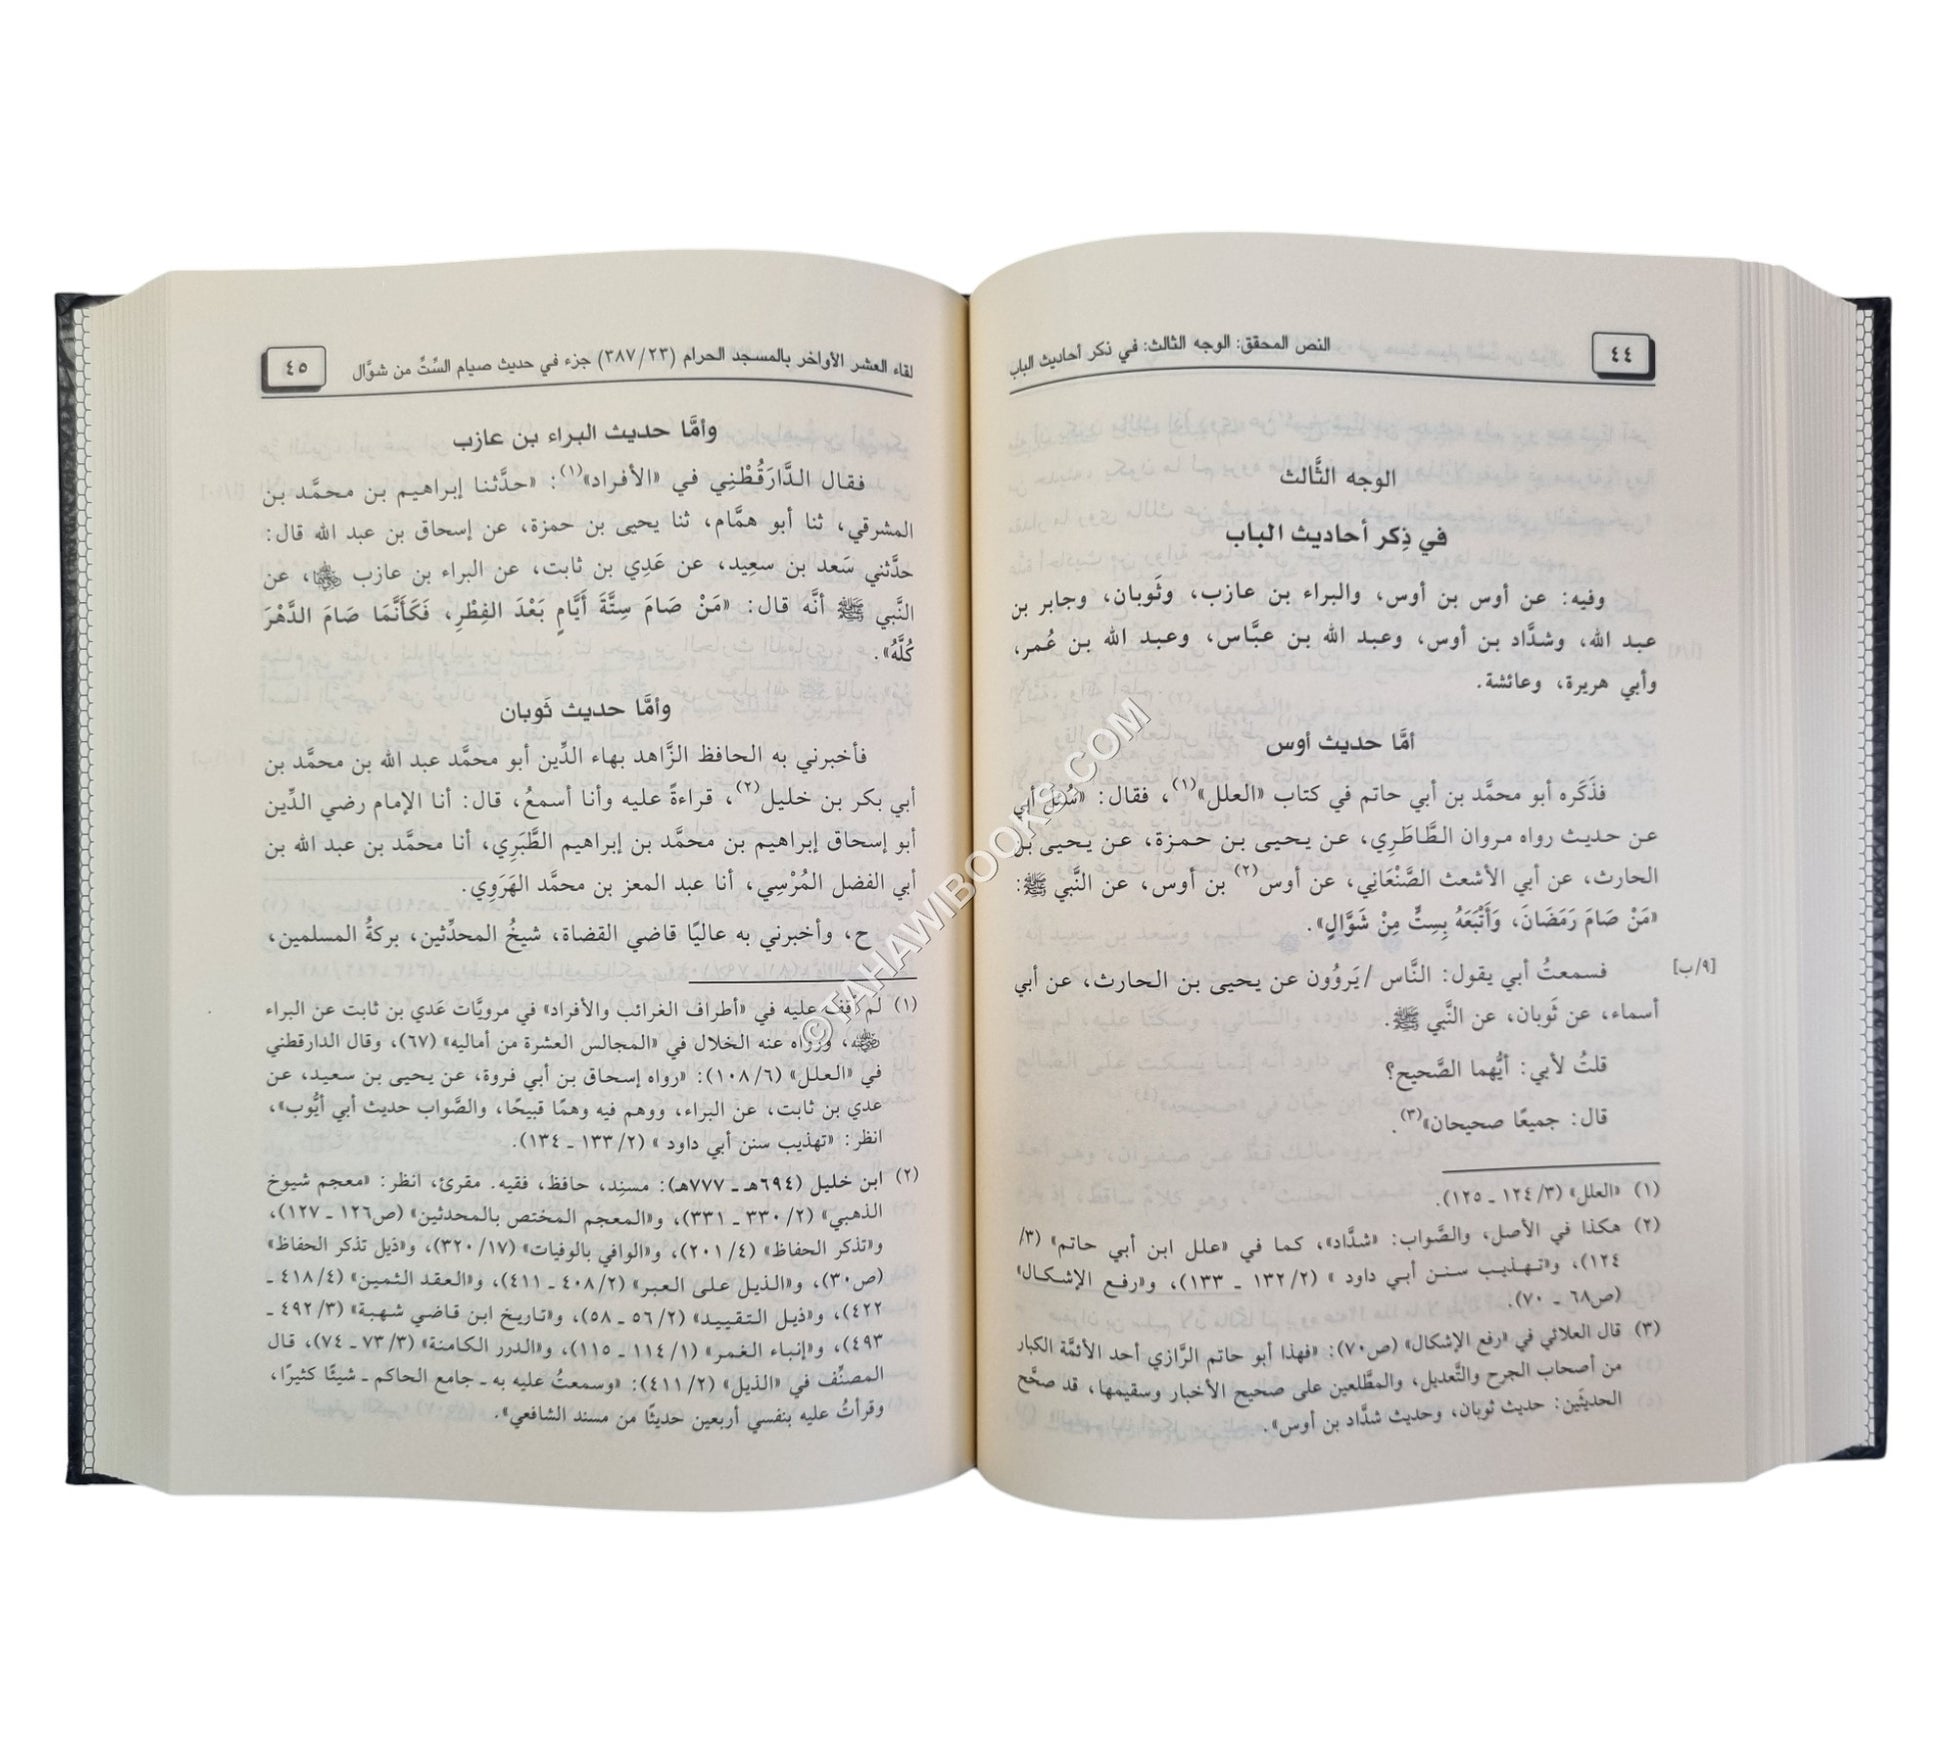 ٤٤
النص المحقق: الوجه الثالث: في ذكر أحاديث الباب
الوجه الثَّالث
في ذِكر أحاديث الباب
وفيه: عن أوس بن أوس، والبراء بن عازب، وثَوبان، وجابر بن
عبد الله، وشدَّاد بن أوس، وعبد الله بن عبَّاس، وعبد الله بن عُمر،
وأبي هريرة، وعائشة.
أمَّا حديث أوس
فذَكَره أبو محمَّد بن أبي حاتم في كتاب «العلل»(١)، فقال: «سُئِل أبي
عن حديث رواه مروان الطَّاطَري، عن يحيى بن حمزة، عن يحيى بن
الحارث، عن أبي الأشعث الصَّنْعَاني، عن أوس(٢) بن أوس، عن النَّبي ﷺ:
«مَنْ صَامَ رَمَضَانَ، وَأَتْبَعَهُ بِسِتٍّ مِنْ شَوَّالٍ».
[٩/ب]
فسمعتُ أبي يقول: النَّاس /يَروُون عن يحيى بن الحارث، عن أبي
أسماء، عن ثَوبان، عن النَّبي ﷺ.
قلتُ لأبي: أيُّهما الصَّحيح؟
قال: جميعًا صحيحان»(٣).
(١) «العلل» (٣/ ١٢٤ ـ ١٢٥).
(٢) هكذا في الأصل، والصَّواب: «شدَّاد»، كما في «علل ابن أبي حاتم» (٣/
١٢٤)، و«تهذيب سنن أبي داود » (٢/ ١٣٢ ـ ١٣٣)، و«رفع الإشكال»
(ص٦٨ ـ ٧٠).
(٣) قال العلائي في «رفع الإشكال» (ص٧٠): «فهذا أبو حاتم الرَّازي أحد الأئمَّة الكبار
من أصحاب الجرح والتَّعديل، والمطَّلعين على صحيح الأخبار وسقيمها، قد صحَّح
الحديثَين: حديث ثوبان، وحديث شدَّاد بن أوس».
لقاء العشر الأواخر بالمسجد الحرام (٣٨٧/٢٣) جزء في حديث صيام السِّتِّ من شوَّال
٤٥
وأمَّا حديث البراء بن عازب
فقال الدَّارَقُطْنِي في «الأفراد»(١): «حدَّثنا إبراهيم بن محمَّد بن
المشرقي، ثنا أبو همَّام، ثنا يحيى بن حمزة، عن إسحاق بن عبد الله قال:
حدَّثني سَعد بن سعِيد، عن عَدِي بن ثابت، عن البراء بن عازب ﵄، عن
النَّبي ﷺ أنَّه قال: «مَنْ صَامَ سِتَّةَ أَيَّامٍ بَعْدَ الفِطْرِ، فَكَأَنَّمَا صَامَ الدَّهْرَ
كُلَّهُ».
وأمَّا حديث ثَوبان
فأخبرني به الحافظ الزَّاهد بهاء الدِّين أبو محمَّد عبد الله بن محمَّد بن
أبي بكر بن خليل(٢)، قراءةً عليه وأنا أسمعُ، قال: أنا الإمام رضي الدِّين
أبو إسحاق إبراهيم بن محمَّد بن إبراهيم الطَّبَرِي، أنا محمَّد بن عبد الله بن
أبي الفضل المُرْسِي، أنا عبد المعز بن محمَّد الهَرَوِي.
ح، وأخبرني به عاليًا قاضي القضاة، شيخُ المحدِّثين، بركةُ المسلمين،
(١) لم أقف عليه في «أطراف الغرائب والأفراد» في مرويَّات عَدي بن ثابت عن البراء
﵁، ورواه عنه الخلال في «المجالس العشرة من أماليه» (٦٧)، وقال الدارقطني
في «العلل» (١٠٨/٦): «رواه إسحاق بن أبي فروة، عن يحيى بن سعيد، عن
عدي بن ثابت، عن البراء، ووهم فيه وهمًا قبيحًا، والصَّواب حديث أبي أيُّوب»،
انظر: «تهذيب سنن أبي داود » (١٣٣/٢ ـ ١٣٤).
(٢) ابن خليل (٦٩٤هـ ـ ٧٧٧هـ): مسنِد، حافظ، فقيه. مقرئ، انظر: «معجم شيوخ
الذهبي» (٢/ ٣٣٠ ـ ٣٣١)، و«المعجم المختص بالمحدثين» (ص١٢٦ ـ ١٢٧)،
و«تذكر الحفاظ» (٢٠١/٤)، و«الوافي بالوفيات» (٣٢٠/١٧)، و«ذيل تذكر الحفاظ»
(ص٣٠)، و«الذيل على العبر» (٤٠٨/٢ ـ ٤١١)، و«العقد الثمين» (٤١٨/٤ ـ
٤٢٢)، و«ذيل التقييد» (٥٦/٢ ـ ٥٨)، و«تاريخ ابن قاضي شهبة» (٤٩٢/٣ ـ
٤٩٣)، و«إنباء الغمر» (١١٤/١ ـ ١١٥)، و«الدرر الكامنة» (٣/ ٧٣ ـ ٧٤)، قال
المصنِّف في «الذيل» (٤١١/٢): «وسمعتُ عليه به ـ جامع الحاكم ـ شيئًا كثيرًا،
وقرأتُ عليه بنفسي أربعين حديثًا من مسند الشافعي».
©TAHAWIBOOKS.COM